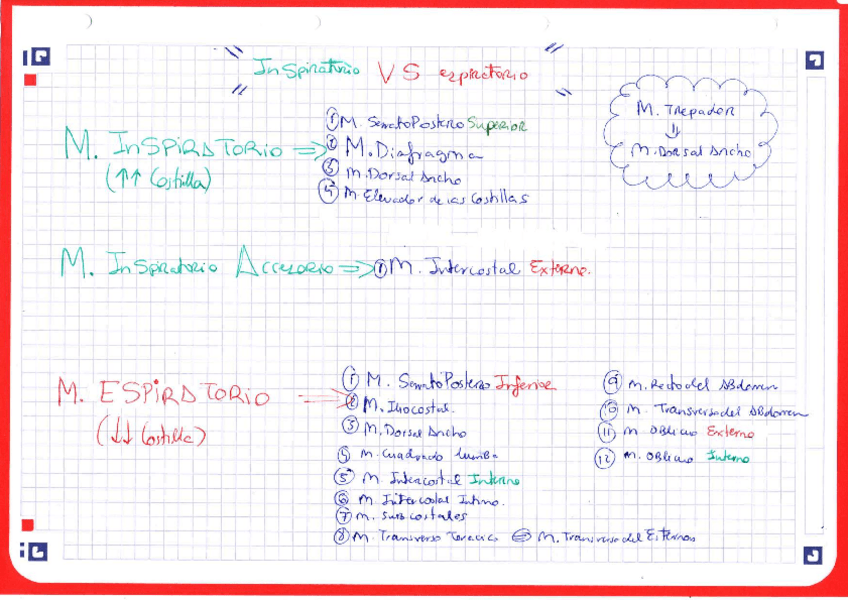 Inspiratorio VS espiratorio
M. Trepador
⇓
M. Dorsal Ancho
M. INSPIRATORIO ⇒
(↑↑ Costilla)
① M. Serrato Postero Superior
② M. Diafragma
③ M. Dorsal Ancho
④ M. Elevador de las Costillas
M. Inspiratorio Accesorio ⇒ ① M. Intercostal Externo.
M. ESPIRATORIO ⇒
(↓↓ Costilla)
① M. Serrato Postero Inferior
② M. Iliocostal.
③ M. Dorsal Ancho
④ M. Cuadrado Lumba
⑤ M Intercostal Interno
⑥ M Intercostal Intimo.
⑦ M. Subcostales
⑧ M. Transverso Toracico ⇔ M. Transverso del Esternon
⑨ M. Recto del Abdomen
⑩ M. Transverso del Abdomen
⑪ M Oblicuo Externo
⑫ M. Oblicuo Interno